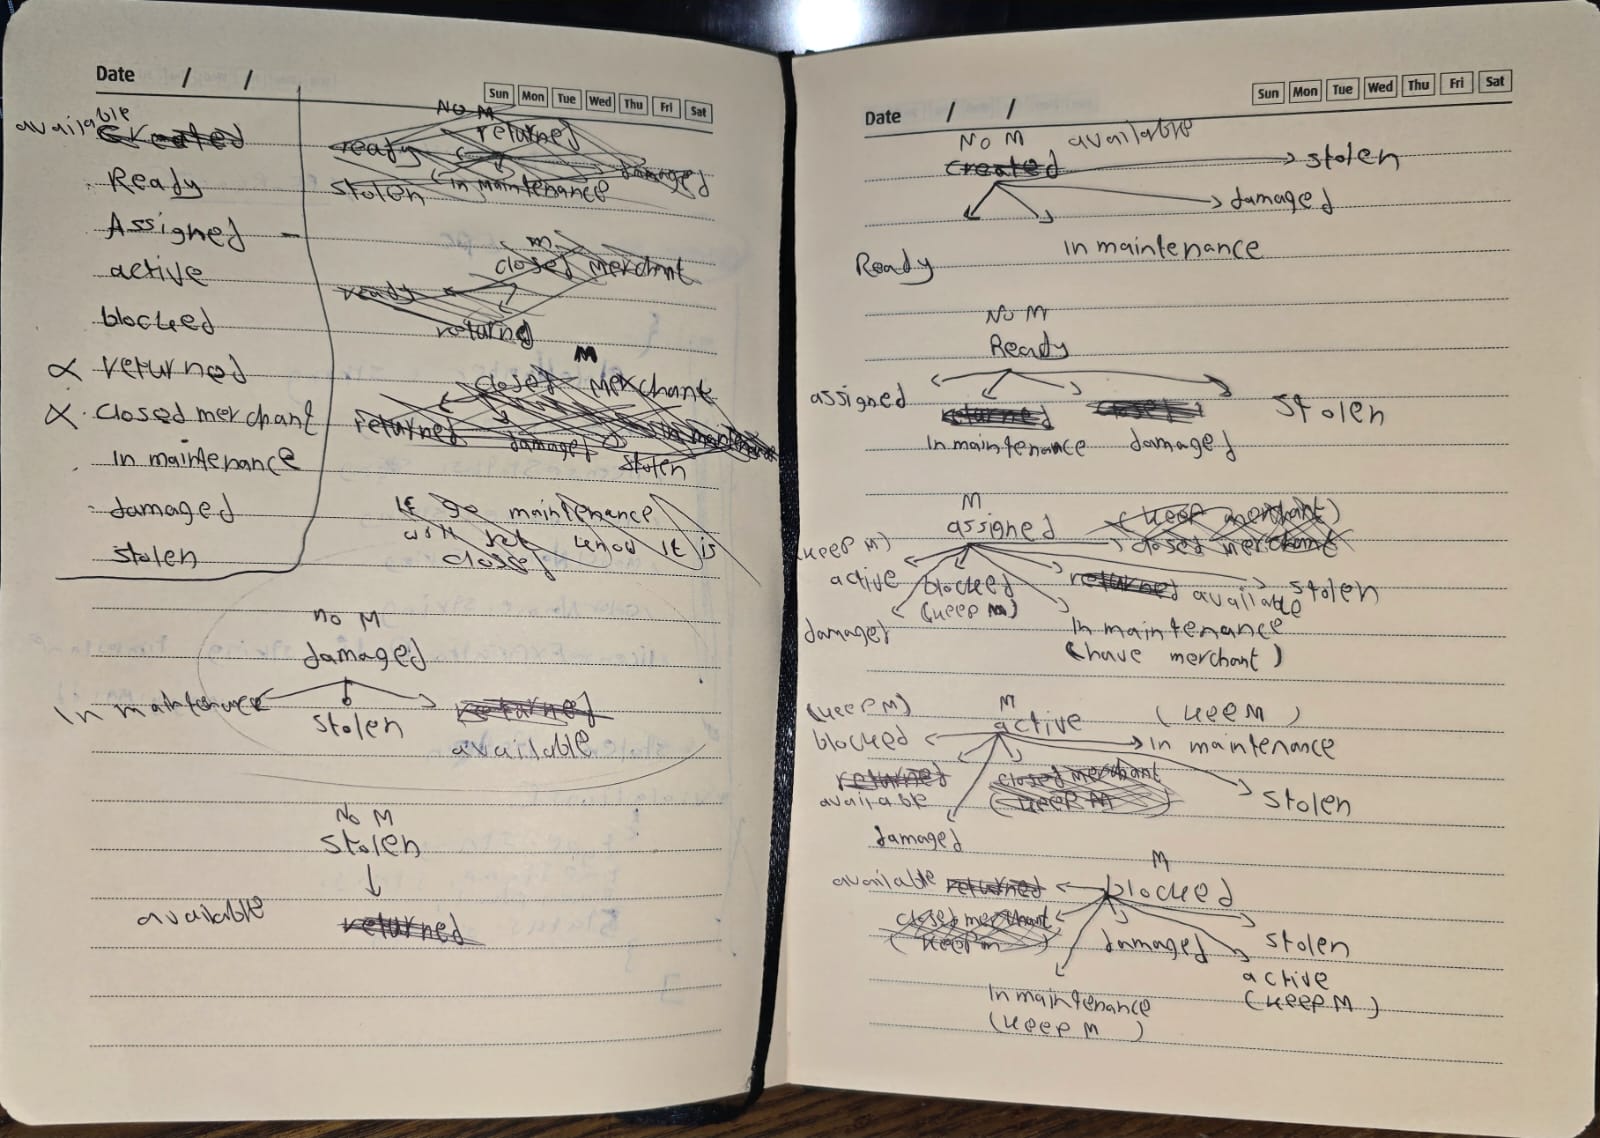 Date / /
Sun Mon Tue Wed Thu Fri Sat
available created
Ready
Assigned -
active
blocked
∝ returned
∝ closed merchant
in maintenance
damaged
stolen
No M
returned
ready
damaged
stolen in maintenance
m
closed merchant
ready
returned
M
closed merchant
returned
damaged
in maintenance
stolen
IF go maintenance
know it is
closed
no M
damaged
In maintenance
stolen
returned
available
No M
stolen
available
returned
Date / /
Sun Mon Tue Wed Thu Fri Sat
No M available
created
stolen
damaged
Ready
in maintenance
No M
Ready
assigned
returned
closed
stolen
in maintenance
damaged
M
assigned
(keep merchant)
closed merchant
(keep M)
active
blocked
(keep m)
returned available
stolen
damaged
In maintenance
(have merchant)
(keep M)
M
active
(keep M)
blocked
in maintenance
returned
available
closed merchant
(keep M)
stolen
damaged
M
available returned
blocked
closed merchant
(keep m)
damaged
stolen
active
(keep M)
In maintenance
(keep M)